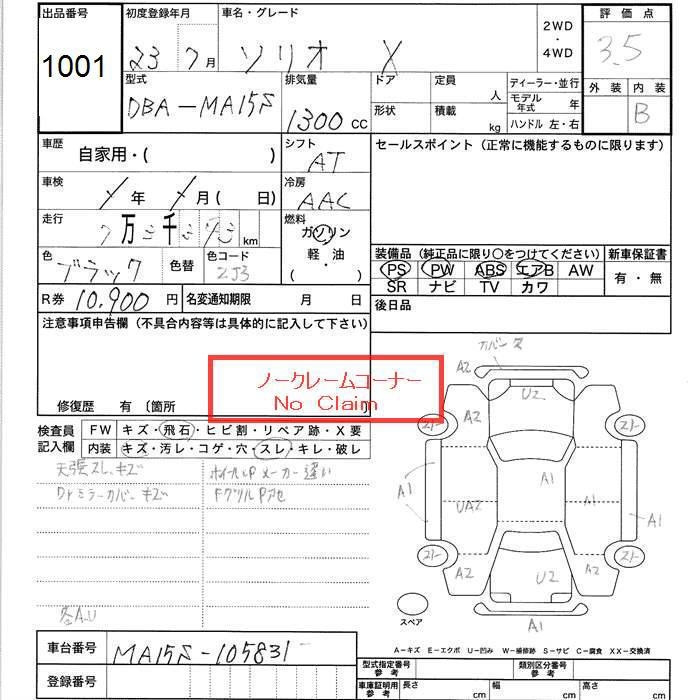 出品番号 初度登録年月 車名・グレード 2WD・4WD 評価点
1001 23 7月 ソリオ X 3.5
型式 排気量 ドア 定員 人 ディーラー・並行 外装 内装
DBA-MA15S 1300cc 形状 積載 kg モデル年式 年 B
ハンドル 左・右
車歴 自家用・( ) シフト AT セールスポイント (正常に機能するものに限ります)
車検 年 月( 日) 冷房 AAC
走行 7万 千 km 燃料 ガソリン
軽・油
・( )
色 ブラック 色替 色コード ZJ3
装備品 (純正品に限り○をつけてください) 新車保証書
PS PW ABS エアB AW 有・無
SR ナビ TV カワ
R券 10,900円 名変通知期限 月 日 後日品
注意事項申告欄 (不具合内容等は具体的に記入して下さい)
ノークレームコーナー
No Claim
修復歴 有 〔箇所 〕
検査員記入欄 FW キズ・飛石・ヒビ割・リペア跡・X要
内装 キズ・汚レ・コゲ・穴・スレ・キレ・破レ
天張スレ、キズ ホイールP メーカー違い
Drミラーカバーキズ
各A.U
カバーヌ
A2 U2
A2 A2
スリ スリ
A1 A1 A1 A1
UA2
スリ スリ
A2 U2 A2
A1
スペア
A-キズ E-エクボ U-凹み W-補修跡 S-サビ C-腐食 XX-交換済
車台番号 MA15S-105831
登録番号
型式指定番号 参考 類別区分番号 参考
車庫証明用 参考 長さ cm 幅 cm 高さ cm